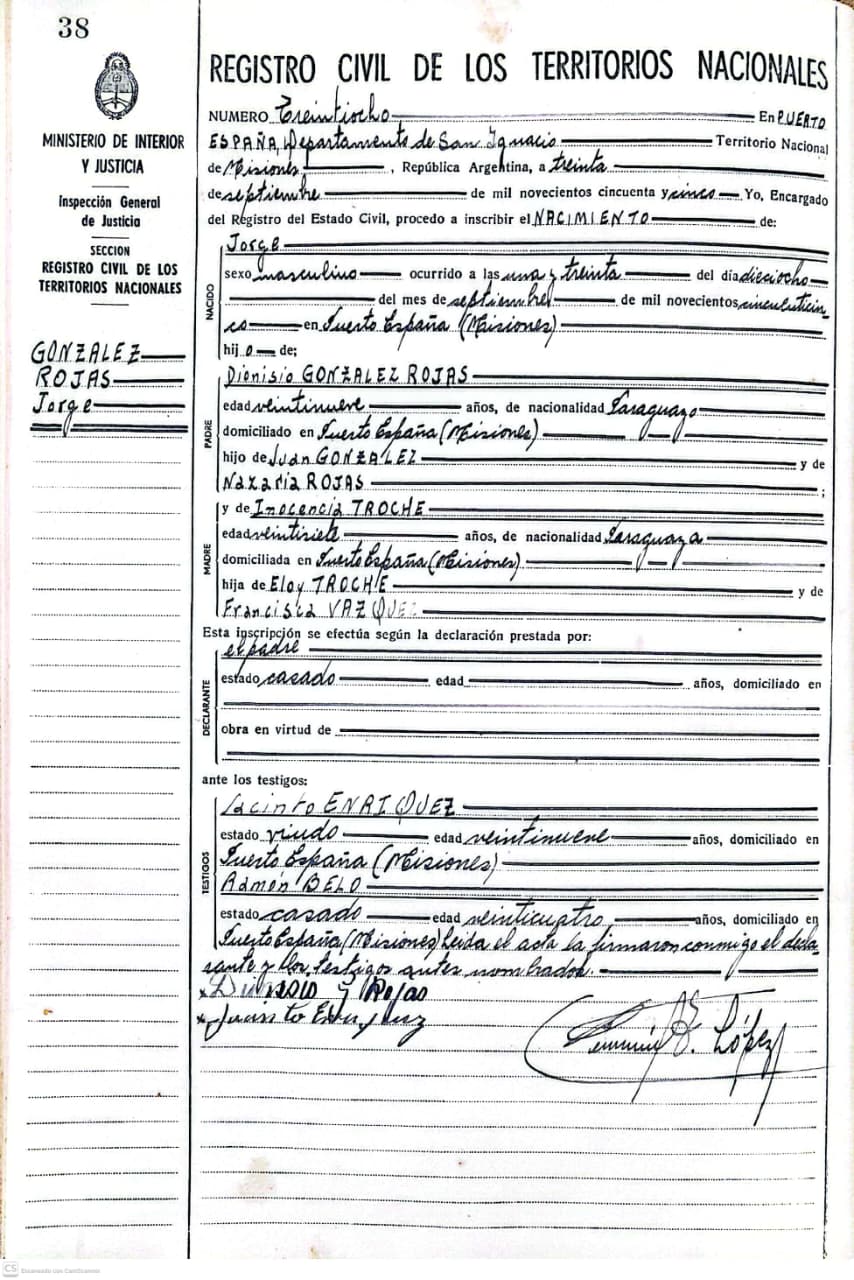 38
MINISTERIO DE INTERIOR
Y JUSTICIA
Inspección General
de Justicia
SECCION
REGISTRO CIVIL DE LOS
TERRITORIOS NACIONALES
GONZALEZ
ROJAS
Jorge
REGISTRO CIVIL DE LOS TERRITORIOS NACIONALES
NUMERO Treintiocho En PUERTO
ESPAÑA, Departamento de San Ignacio Territorio Nacional
de Misiones, República Argentina, a treinta
de septiembre de mil novecientos cincuenta y cinco Yo, Encargado
del Registro del Estado Civil, procedo a inscribir el NACIMIENTO de:
NACIDO
Jorge
sexo masculino ocurrido a las una y treinta del día dieciocho
del mes de septiembre de mil novecientos cincuenticin
co en Puerto España (Misiones)
hij o de;
PADRE
Dionisio GONZALEZ ROJAS
edad veintinueve años, de nacionalidad Paraguayo
domiciliado en Puerto España (Misiones)
hijo de Juan GONZALEZ y de
Nazaria ROJAS ;
MADRE
y de Inocencia TROCHE
edad veintisiete años, de nacionalidad Paraguaya
domiciliada en Puerto España (Misiones)
hija de Eloy TROCHE y de
Francisca VAZQUEZ
Esta inscripción se efectúa según la declaración prestada por:
DECLARANTE
el padre
estado casado edad años, domiciliado en
obra en virtud de
ante los testigos:
TESTIGOS
Jacinto ENRIQUEZ
estado viudo edad veintinueve años, domiciliado en
Puerto España (Misiones)
Ramón BELO
estado casado edad veinticuatro años, domiciliado en
Puerto España (Misiones) Leida el acta la firmaron conmigo el decla-
rante y los testigos antes nombrados.
Rojas
López
CS Escaneado con CamScanner